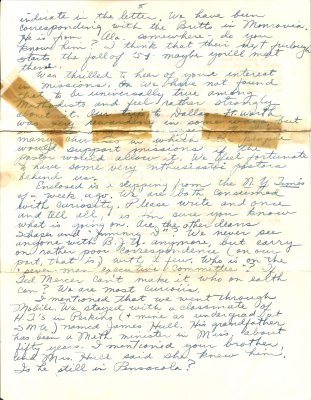 5
indicate in the letter. We have been
corresponding with the Britts in Monrovia.
He is from "Ala. somewhere - do you
know him? I think that their next furlough
starts the fall of 54 maybe you'll meet
them.
Was thrilled to hear of your interest
in missions. We have not found
that to be universally true among
Methodists and feel rather strongly
about it. Our trip to Dallas, Ft. Worth
was
many churches in which the
would support missions if the
pastor would allow it. We feel fortunate
to have some very enthusiastic pastors
behind us.
Enclosed is clipping from the N.Y. Times
of a week ago. We are both consumed
with curiosity. Please write and once
and tell all, as I'm sure you know
what is going on. Are the other deans
We never see
anyone with B.D. anymore, but carry
on rather poor correspondence (on our
part, that is) with a few. Who is on the
"seven man executive committee"? If
Ted Mercer can't make it who on earth
can? We are most curious.
I mentioned that we went through
Mobile. We stayed with a classmate of
HJ's in Perkins (& mine as undergrad at
SMU) named James Hull. His grandfather
has been a Meth. minister in Miss. about
fifty years. I mentioned your brother,
and Mrs. Hull said she knew him.
Is he still in Pensacola?